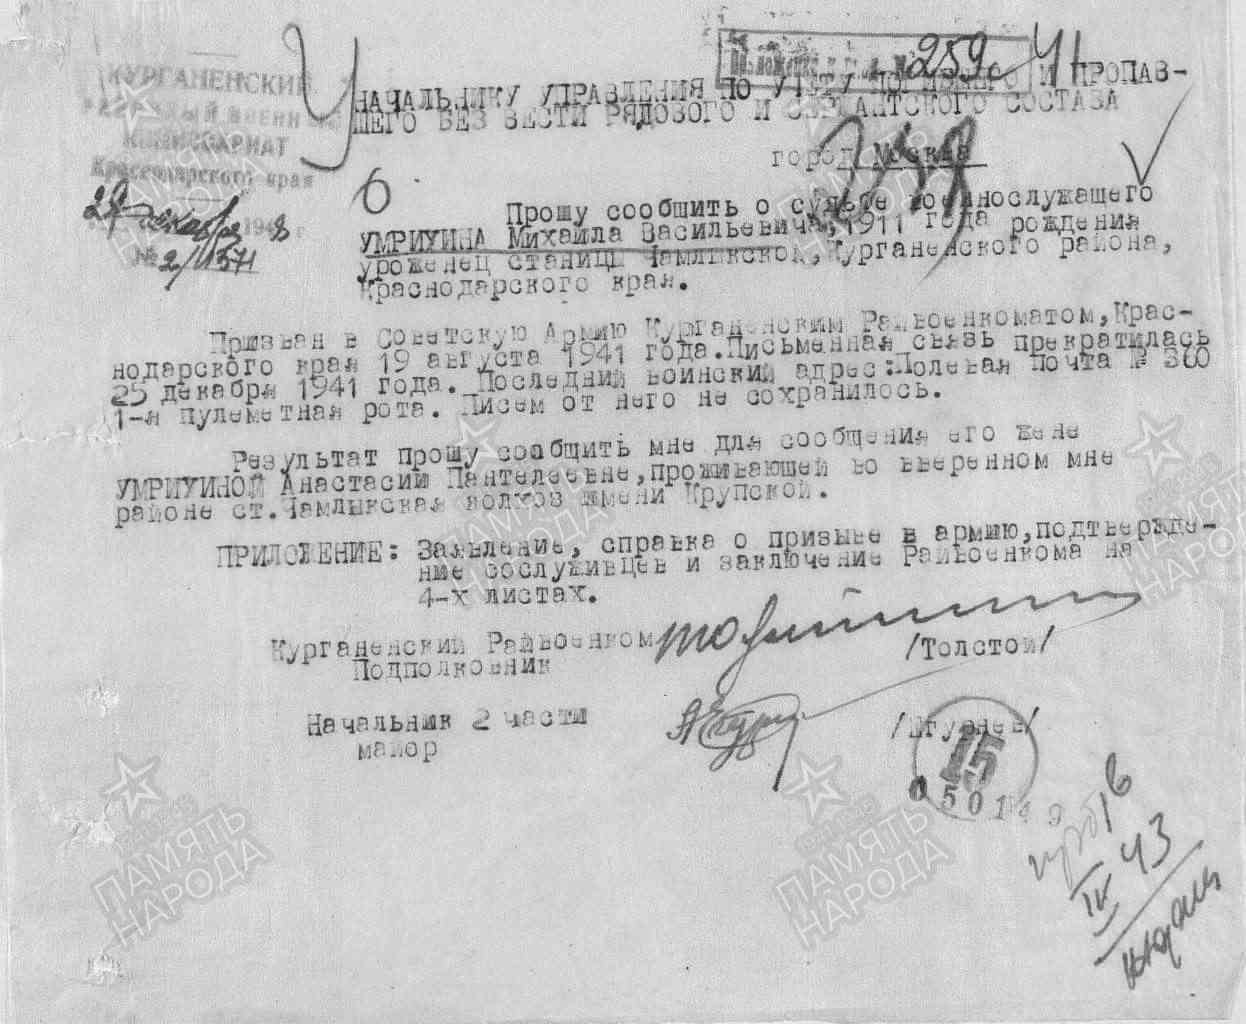 КУРГАНЕНСКИЙ
РАЙОННЫЙ ВОЕННЫЙ
КОМИССАРИАТ
Краснодарского края
29 декабря 1948 г
№ 2/11571
259с 41
НАЧАЛЬНИКУ УПРАВЛЕНИЯ ПО УЧЕТУ ПОГИБШЕГО И ПРОПАВ-
ШЕГО БЕЗ ВЕСТИ РЯДОВОГО И СЕРЖАНТСКОГО СОСТАВА
город Москва
Прошу сообщить о судьбе военнослужащего
УМРИХИНА Михаила Васильевича, 1911 года рождения
уроженец станицы Чамлыкской, Курганенского района,
Краснодарского края.
Призван в Советскую Армию Курганенским Райвоенкоматом, Крас-
нодарского края 19 августа 1941 года. Письменная связь прекратилась
25 декабря 1941 года. Последний воинский адрес: Полевая Почта № 360
1-я пулеметная рота. Писем от него не сохранилось.
Результат прошу сообщить мне для сообщения его жене
УМРИХИНОЙ Анастасии Пантелеевне, проживающей во вверенном мне
районе ст. Чамлыкская колхоз имени Крупской.
ПРИЛОЖЕНИЕ: Заявление, справка о призыве в армию, подтвержде-
ние сослуживцев и заключение Райвоенкома на
4-х листах.
Курганенский Райвоенком
Подполковник
/Толстой/
Начальник 2 части
майор
/Шгурнев/
15
050149
IV 43
ПАМЯТЬ
НАРОДА
ПАМЯТЬ
НАРОДА
ПАМЯТЬ
НАРОДА
ПАМЯТЬ
НАРОДА
ПАМЯТЬ
НАРОДА
ПАМЯТЬ
НАРОДА